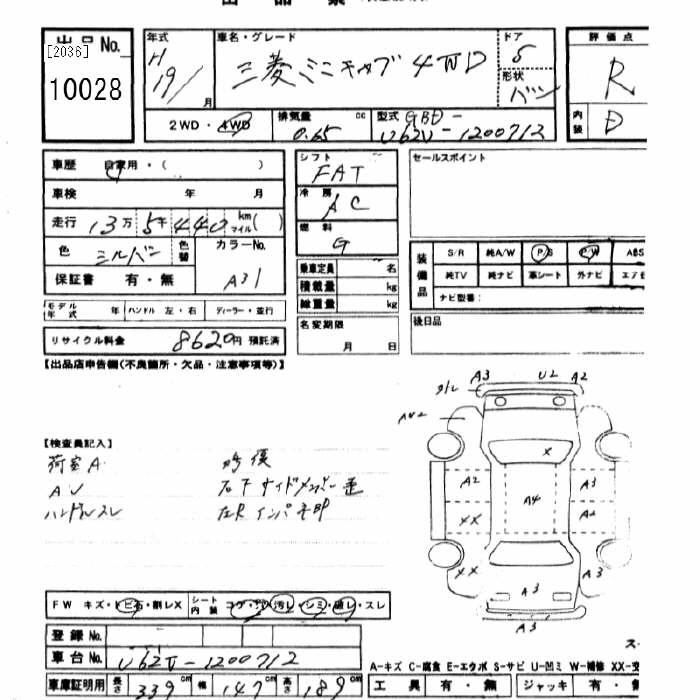 出品票
[2036]
出品 No.
10028
年式
H
19/
月
車名・グレード
三菱ミニキャブ 4WD
ドア
5
形状
バン
評価点
R
内装
D
2WD・4WD
排気量 cc
0.65
型式 GBD-
U62V-1200712
車歴 自家用・( )
車検 年 月
走行 13万 5千 440 km マイル( )
色 シルバー 色替 カラーNo.
A31
保証書 有・無
モデル年式 年 ハンドル 左・右 ディーラー・並行
リサイクル料金 8620円 預託済
シフト
FAT
冷房
AC
燃料
G
乗車定員 名
積載量 kg
総重量 kg
名変期限
月 日
セールスポイント
装備品
S/R 純A/W P/S P/W ABS
純TV 純ナビ 革シート 外ナビ エアB
ナビ型番:
後日品
【出品店申告欄(不良箇所・欠品・注意事項等)】
【検査員記入】
荷室A
ハンドルスレ
A3 U2 A2
X
A2 A4 A3
XX A2
XX A3 A3
A3
FW キズ・トビ石・割レX シート内装 コゲ・穴・汚レ・シミ・破レ・スレ
登録 No.
車台 No. U62V-1200712
車庫証明用 長さ 339 cm 幅 147 cm 高さ 189 cm
A-キズ C-腐食 E-エクボ S-サビ U-凹ミ W-補修 XX-交
工具 有・無 ジャッキ 有・無